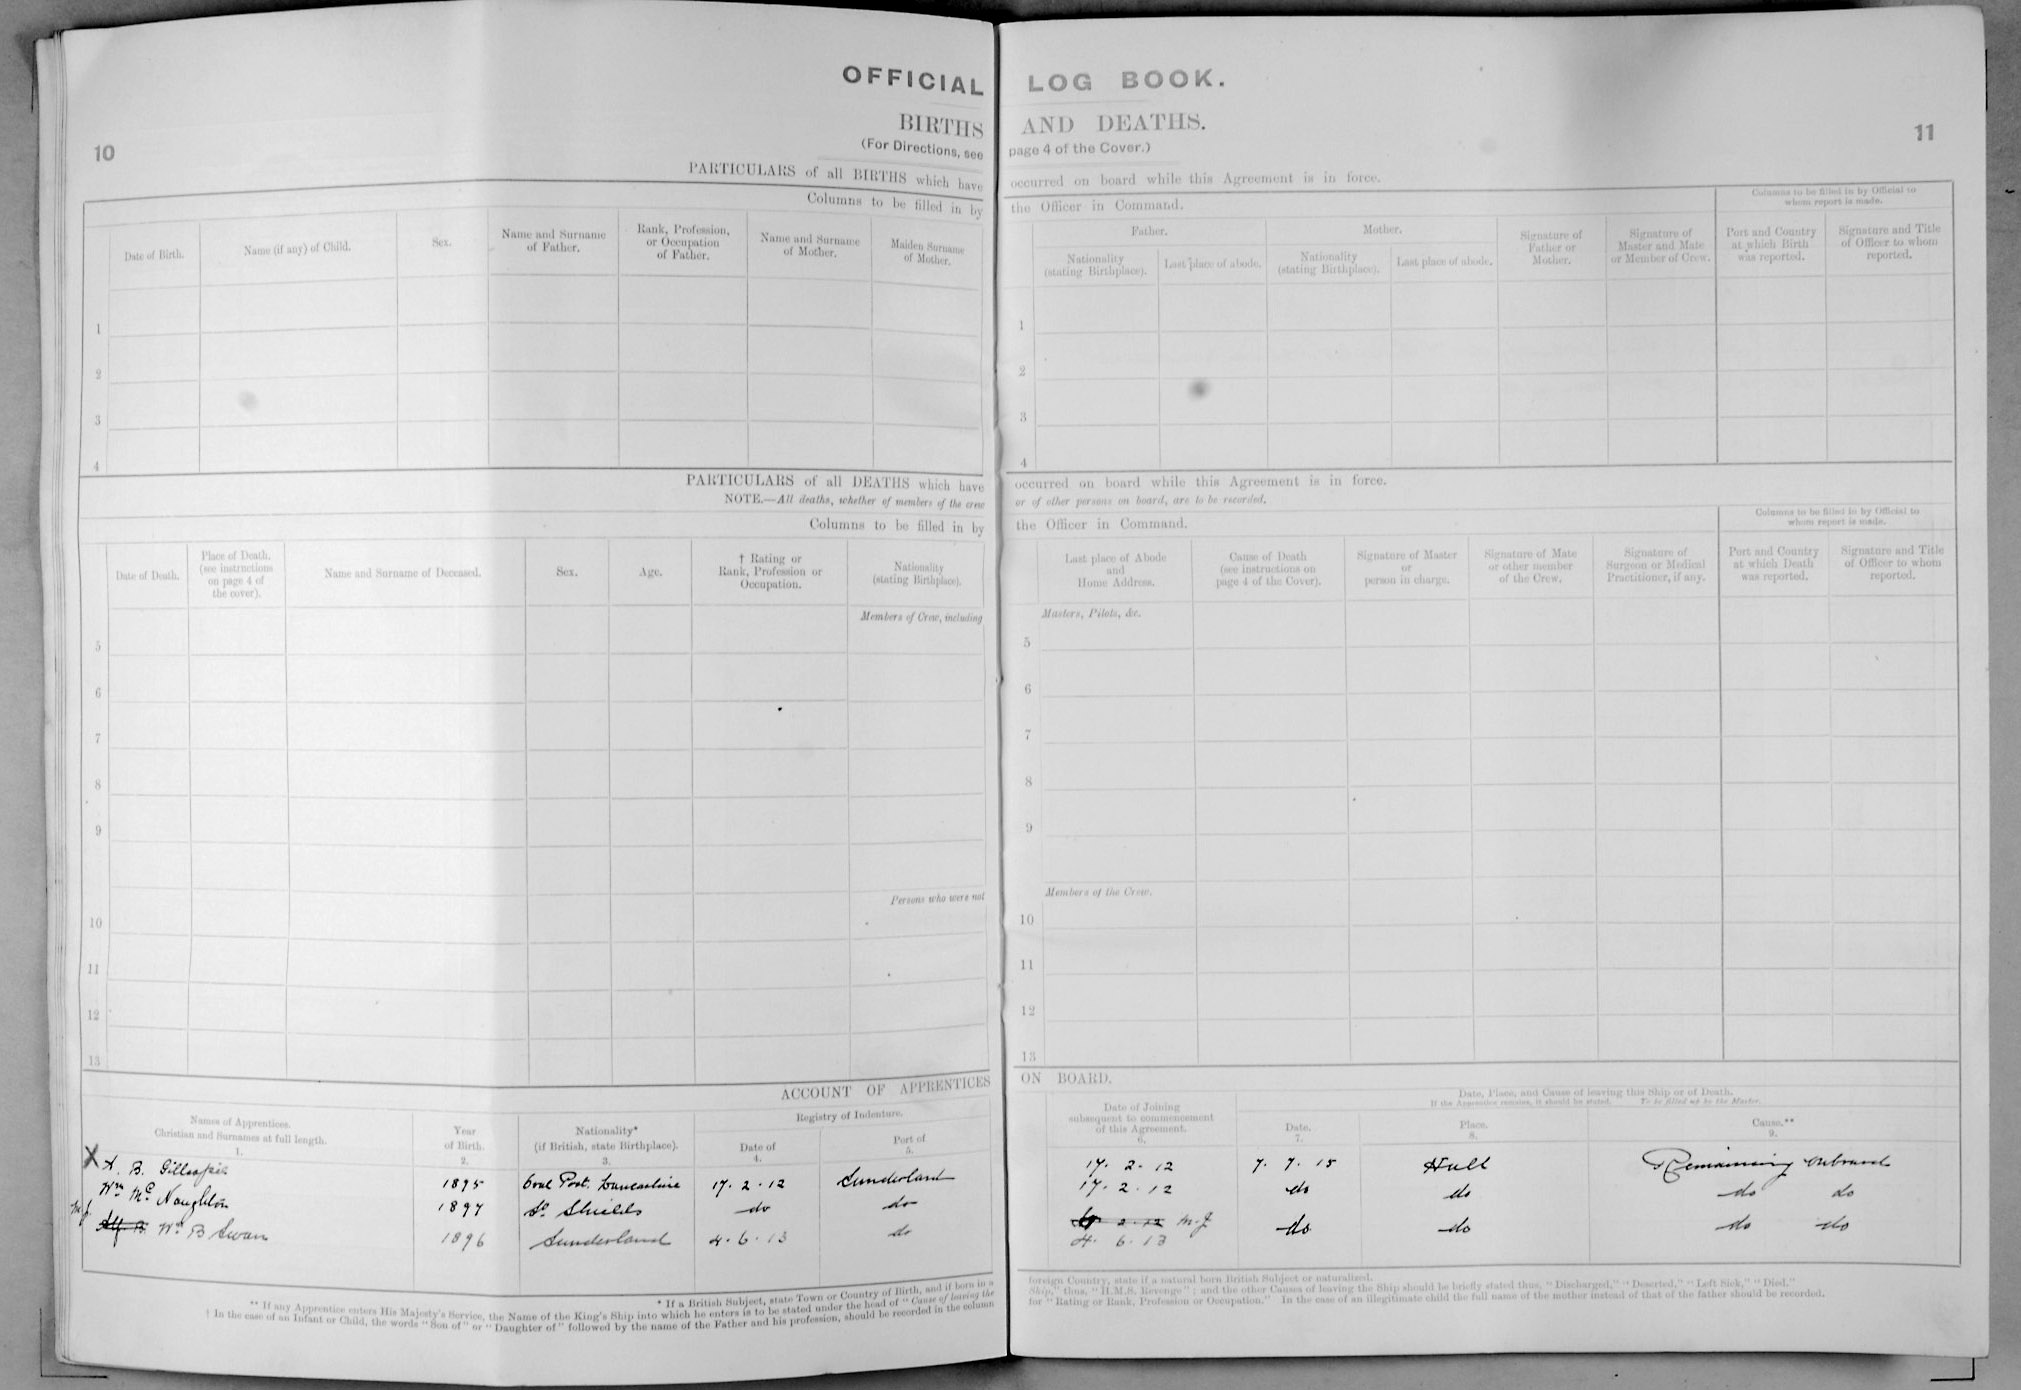 10
OFFICIAL
BIRTHS
(For Directions, see
PARTICULARS of all BIRTHS which have
Columns to be filled in by
Date of Birth.
Name (if any) of Child.
Sex.
Name and Surname
of Father.
Rank, Profession,
or Occupation
of Father.
Name and Surname
of Mother.
Maiden Surname
of Mother.
1
2
3
4
PARTICULARS of all DEATHS which have
NOTE.—All deaths, whether of members of the crew
Columns to be filled in by
Date of Death.
Place of Death.
(see instructions
on page 4 of
the cover).
Name and Surname of Deceased.
Sex.
Age.
† Rating or
Rank, Profession or
Occupation.
Nationality
(stating Birthplace).
Members of Crew, including
5
6
7
8
9
Persons who were not
10
11
12
13
ACCOUNT OF APPRENTICES
Names of Apprentices.
Christian and Surnames at full length.
1.
Year
of Birth.
2.
Nationality*
(if British, state Birthplace).
3.
Registry of Indenture.
Date of
4.
Port of
5.
X A. B. Gillespie 1895 Lancashire 17. 2. 12 Sunderland
Wm McNaughton 1897 So Shields do do
M.J. Alf. B. Wm B Swan 1896 Sunderland 4. 6. 13 do
* If a British Subject, state Town or Country of Birth, and if born in a
** If any Apprentice enters His Majesty's Service, the Name of the King's Ship into which he enters is to be stated under the head of "Cause of leaving the
† In the case of an Infant or Child, the words "Son of" or "Daughter of" followed by the name of the Father and his profession, should be recorded in the column
LOG BOOK.
11
AND DEATHS.
page 4 of the Cover.)
occurred on board while this Agreement is in force.
the Officer in Command.
Columns to be filled in by Official to
whom report is made.
Father.
Nationality
(stating Birthplace).
Last place of abode.
Mother.
Nationality
(stating Birthplace).
Last place of abode.
Signature of
Father or
Mother.
Signature of
Master and Mate
or Member of Crew.
Port and Country
at which Birth
was reported.
Signature and Title
of Officer to whom
reported.
1
2
3
4
occurred on board while this Agreement is in force.
or of other persons on board, are to be recorded.
the Officer in Command.
Columns to be filled in by Official to
whom report is made.
Last place of Abode
and
Home Address.
Cause of Death
(see instructions on
page 4 of the Cover).
Signature of Master
or
person in charge.
Signature of Mate
or other member
of the Crew.
Signature of
Surgeon or Medical
Practitioner, if any.
Port and Country
at which Death
was reported.
Signature and Title
of Officer to whom
reported.
Masters, Pilots, &c.
5
6
7
8
9
Members of the Crew.
10
11
12
13
ON BOARD.
Date of Joining
subsequent to commencement
of this Agreement.
6.
Date, Place, and Cause of leaving this Ship or of Death.
If the Apprentice remains, it should be stated. To be filled up by the Master.
Date.
7.
Place.
8.
Cause.**
9.
17. 2. 12 7. 7. 15 Hull Remaining onboard
17. 2. 12 do do do do
2. 12 M.J. do do do do
4. 6. 13
foreign Country, state if a natural born British Subject or naturalized.
Ship," thus, "H.M.S. Revenge"; and the other Causes of leaving the Ship should be briefly stated thus, "Discharged," "Deserted," "Left Sick," "Died."
for "Rating or Rank, Profession or Occupation." In the case of an illegitimate child the full name of the mother instead of that of the father should be recorded.